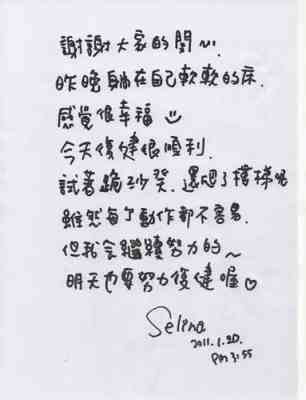 謝謝大家的關心.
昨晚躺在自己軟軟的床.
感覺很幸福
今天復健很順利.
試著跪沙發.還爬了樓梯呢
雖然每個動作都不容易.
但我會繼續努力的~
明天也要努力復健喔♡
Selina
2011.1.20.
PM 3:55